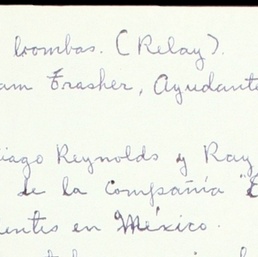 bombas. (Relay).
am Frasher, Ayudante
iago Reynolds y Ray
de la Compañía "E
entes en México.